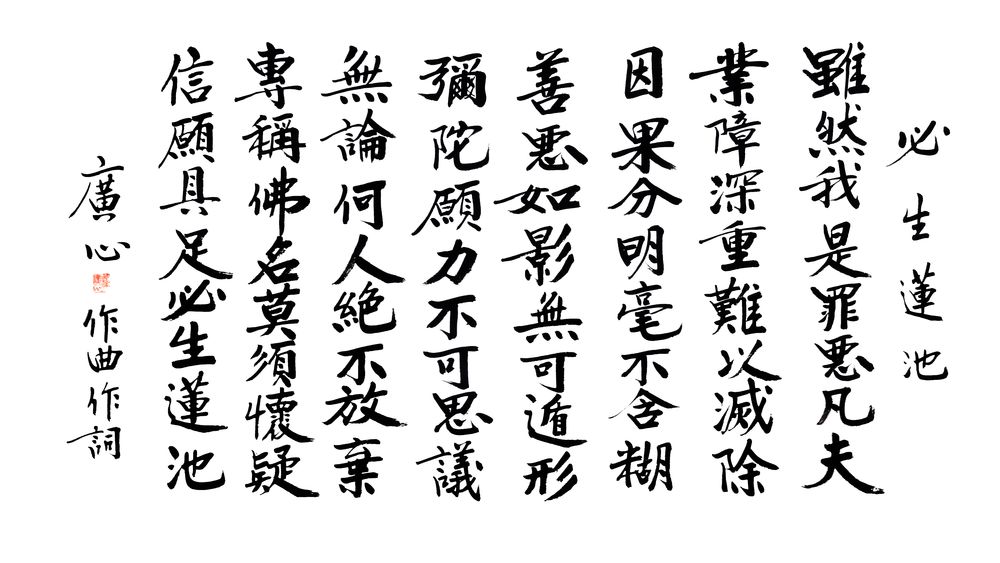 必生蓮池
雖然我是罪惡凡夫
業障深重難以滅除
因果分明毫不含糊
善惡如影無可遁形
彌陀願力不可思議
無論何人絕不放棄
專稱佛名莫須懷疑
信願具足必生蓮池
廣心
作曲作詞